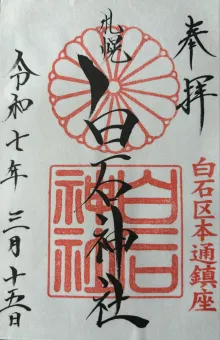 奉拝
白石区本通鎮座
札幌
白石神社
白石
神社
令和七年 三月 十五日